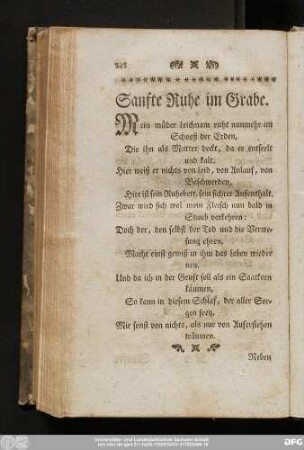 248
Sanfte Ruhe im Grabe.
Mein müder Leichnam ruht nunmehr im
Schooß der Erden,
Die ihn als Mutter deckt, da er entseelt
und kalt.
Hier weiß er nichts von Leid, von Anlauf, von
Beschwerden,
Hier ist sein Ruhebett, sein sichrer Aufenthalt.
Zwar wird sich wol mein Fleisch nun bald in
Staub verkehren:
Doch der, den selbst der Tod und die Verwe-
sung ehren,
Macht einst gewiß in ihm das Leben wieder
neu.
Und da ich in der Gruft soll als ein Saatkorn
käumen,
So kann in diesem Schlaf, der aller Sor-
gen frey,
Mir sonst von nichts, als nur von Auferstehen
träumen.
Neben